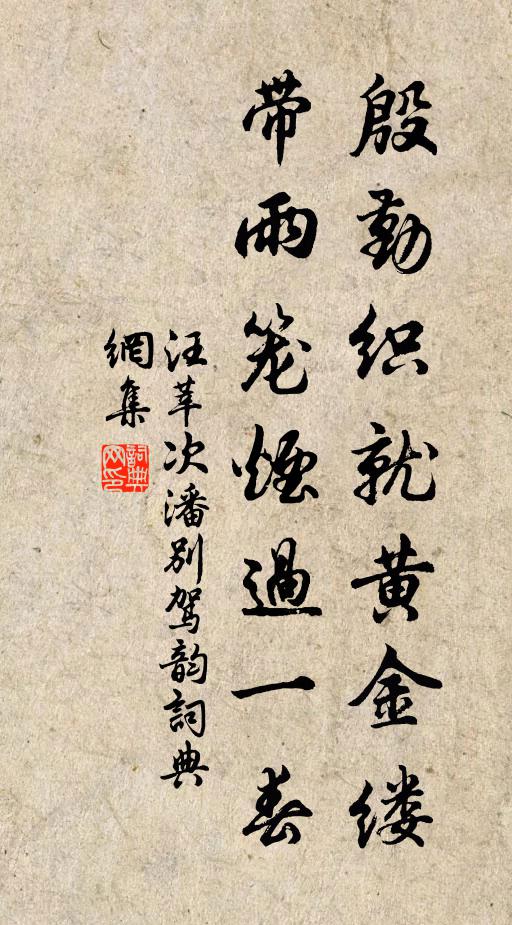 殷勤织就黄金缕
带雨笼煙過一春
汪莘次潘别驾韵詞典
網集
詞典網印